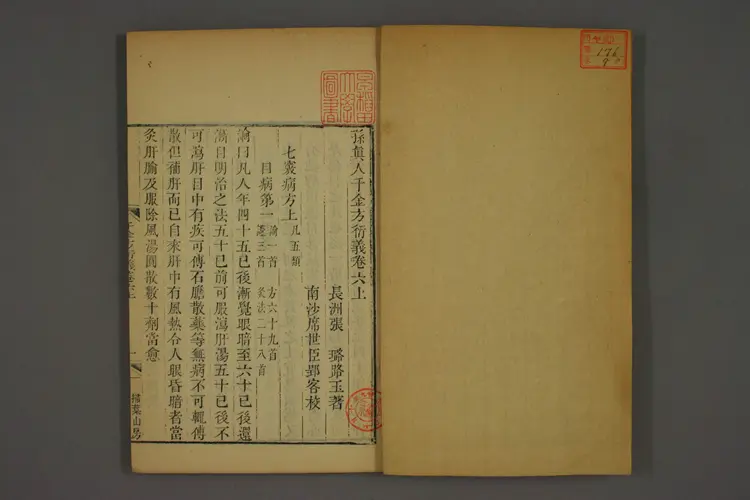 孫真人千金方衍義卷六上
長洲張　璐路玉著
南沙席世臣郢客校
七竅病方上 凡五類
目病第一 論一首　方六十九首
灸法二十八首
論曰凡人年四十五已後漸覺眼暗至六十已後還
漸自明治之法五十已前可服瀉肝湯五十已後不
可瀉肝目中有疾可傅石膽散藥等無病不可輒傅
散但補肝而已自来肝中有風熱令人眼昏暗者當
灸肝腧及服除風湯圓散數十劑當愈
千金方衍義卷六上
一
掃葉山房
早稻田大學圖書
176